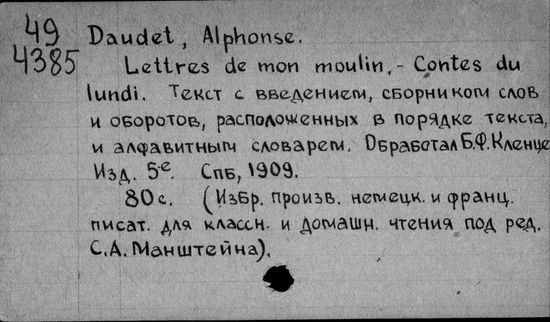 49
4385
Daudet, Alphonse.
Lettres de mon moulin. - Contes du
lundi. Текст с введением, сборником слов
и оборотов, расположенных в порядке текста,
и алфавитным словарем. Обработал Б.Ф. Кленце
Изд. 5е. Спб, 1909.
80 с. (Избр. произв. немецк. и франц.
писат. для классн. и домашн. чтения под ред.
С.А. Манштейна).